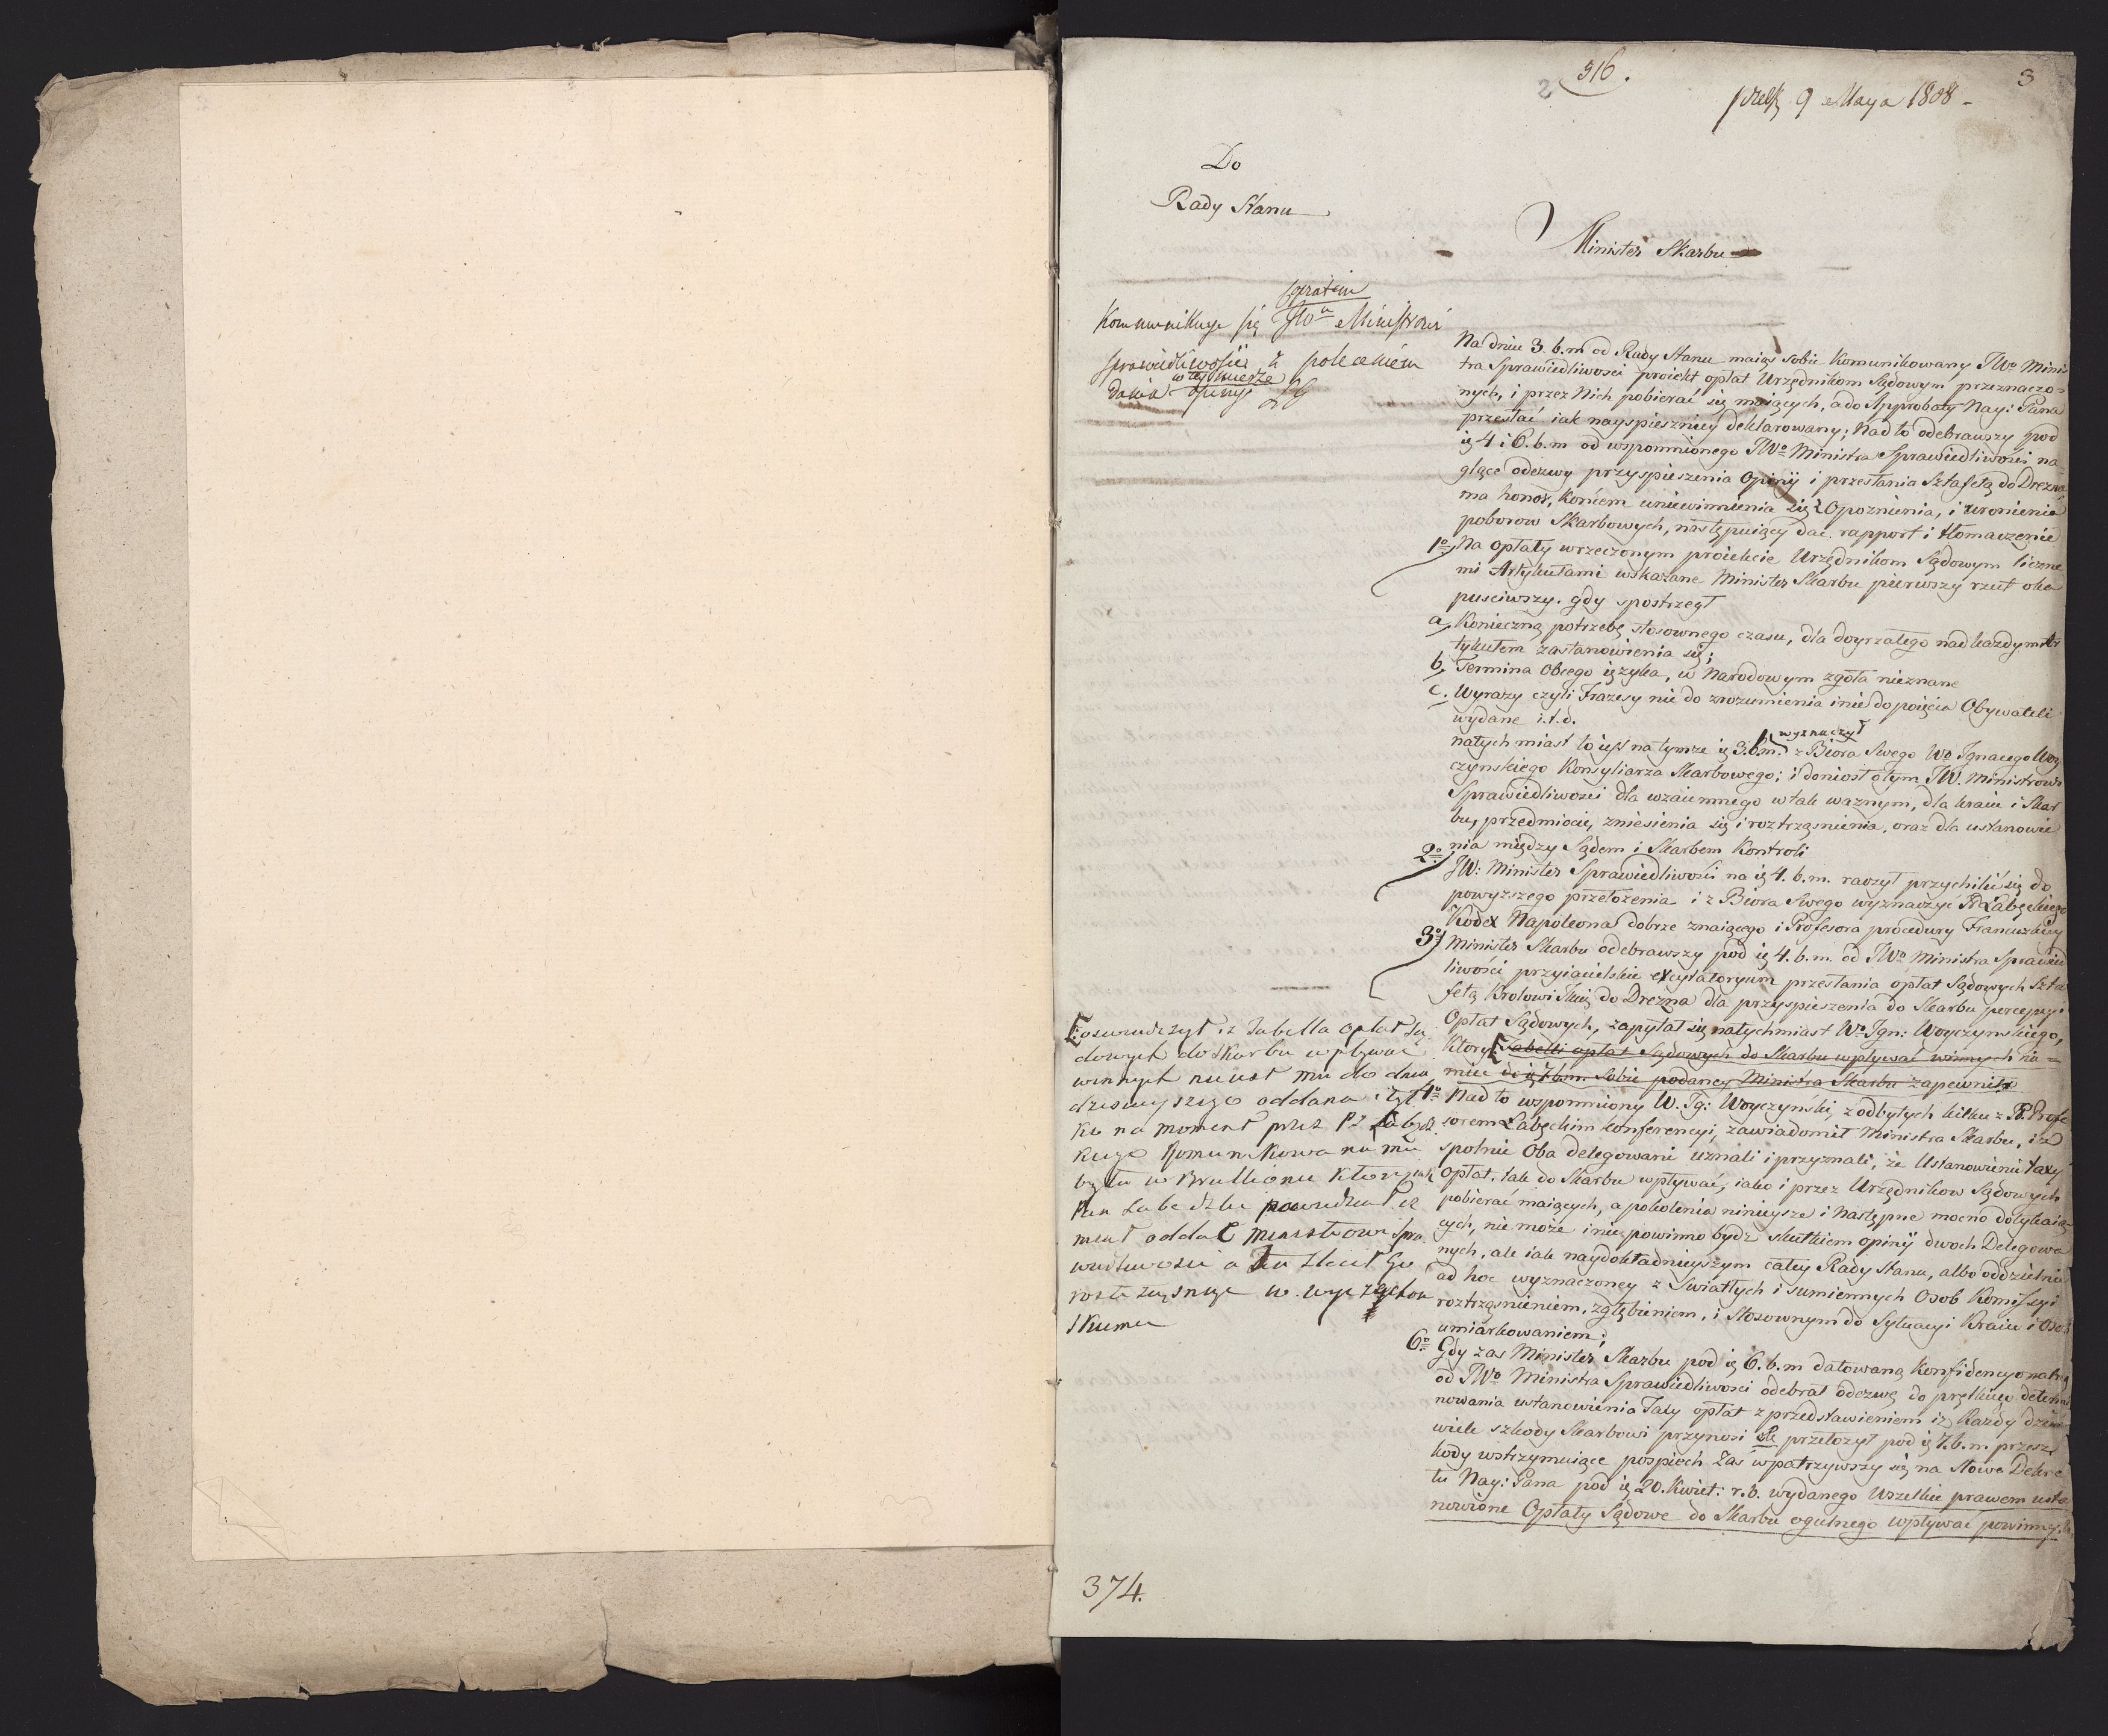 316.
2
3
9 Maya 1808 -
Do
Rady Stanu
Minister Skarbu
Kommunikuje się JWu Ministrowi
sprawiedliwości z poleceniem
w tey mierze
dania Opinij
Na dniu 3. b.m od Rady Stanu maiąc sobie Komunikowany JWo Minis
tra Sprawiedliwosci proiekt opłat Urzędnikom Sądowym przeznaczo-
nych, i przez Nich pobierać się maiących, a do Approbaty Nay: Pana
przesłać iak nayspieszniey deklarowany; Nad to odebrawszy pod
ię 4 i 6. b.m od wspomnionego JWo Ministra Sprawiedliwosci na-
glące odezwy przyspieszenia Opinij i przesłania Sztafetą do Drezna
ma honor, końcem uniewinnienia się z Opoznienia, i uronienia
poborow Skarbowych, następuiący dać rapport i tłomaczenie
1o Na opłaty w rzeczonym proiekcie Urzędnikom Sądowym liczne
mi Artykułami wskazane Minister Skarbu pierwszy rzut oka
pusciwszy. gdy spostrzegł
a, Konieczną potrzebę stosownego czasu, dla doyrzałego nad każdym Ar
tykułem zastanowienia się;
b, Termina Obcego ięzyka, w Narodowym zgoła nieznane
c. Wyrazy czyli Frazesy nie do zrozumienia i nie do poięcia Obywateli
wydane i.t.d.
wyznaczył
natychmiast to iest na tymze ię 3. b.m. z Biora Swego Wo Ignacego Woy
czynskiego Konsyliarza Skarbowego; i doniosł o tym JW. Ministrowi
Sprawiedliwosci dla wzaiemnego w tak waznym, dla kraiu i Skar
bu, przedmiocie, zniesienia się i roztrząsnienia, oraz dla ustanowie
nia między Sądem i Skarbem Kontroli
2o JW: Minister Sprawiedliwości na ię 4. b.m. raczył przychilić się do
powyzszego przełożenia i z Biora Swego wyznaczyć P. Łabęckiego
Kodex Napoleona dobrze znaiącego i Profesora procedury Francuzkiey
3o Minister Skarbu odebrawszy pod ię 4. b.m. od JWo Ministra Sprawied
liwości przyiacielskie excytatoryum przesłania opłat Sądowych Szta
fetą Krolowi do Drezna dla przyspieszenia do Skarbu percepcyi
Opłat Sądowych, zapytał się natychmiast Wo Ign: Woyczynskiego,
ktory Tabelli opłat Sądowych do Skarbu wpływać winnych nie-
miec do ię 7 b.m. sobie podaney Ministra Skarbu zapewnił
4o Nad to wspomniony W. Ig: Woyczyński, z odbytych kilku z P. Profe
sorem Łabęckim konferencyi, zawiadomił Ministra Skarbu, iż
spolnie Oba delegowani uznali i przyznali, że Ustanowienie taxy
Opłat, tak do Skarbu wpływać, iako i przez Urzędnikow Sądowych
pobierać maiących, a pokolenia ninieysze i następne mocno dotykaią-
cych, nie może i nie powinno bydz skutkiem opinij dwoch Delegowa
nych, ale iak naydokładnieyszym całey Rady Stanu, albo oddzielnie
ad hoc wyznaczoney z Swiatłych i sumiennych Osob Komissyi
roztrząsnieniem, zgłębieniem, i Stosownym do Sytuacyi Kraiu i Osob
umiarkowaniem;
6o Gdy zas Minister Skarbu pod ię 6. b.m datowaną Konfidencyonalną
od JWo Ministra Sprawiedliwosci odebrał odezwę do prętkiego determi
nowania ustanowienia Taxy opłat z przedstawieniem iż Każdy dzień
wiele szkody Skarbowi przynosi przełożył pod ię 7. b.m. przesz
kody wstrzymuiące pospiech Zas wpatrzywszy się na słowa Dekre
tu Nay: Pana pod ię 20. Kwiet: r.b. wydanego Wszelkie prawem usta
nowione Opłaty Sądowe do Skarbu ogulnego wpływać powinny.
oswiadczył iz Tabella opłat Są
dowych do Skarbu wpływać
winnych nie iest mu do dnia
dzisieyszego oddana i tyl
ko na moment przez P. Łabędz
kiego Komunikowana mu
była w Brullionie który
Pan Łabedzki powiedział iz
miał oddać Ministrowi Spra
wiedliwosci a Ten zlecił Go
374.